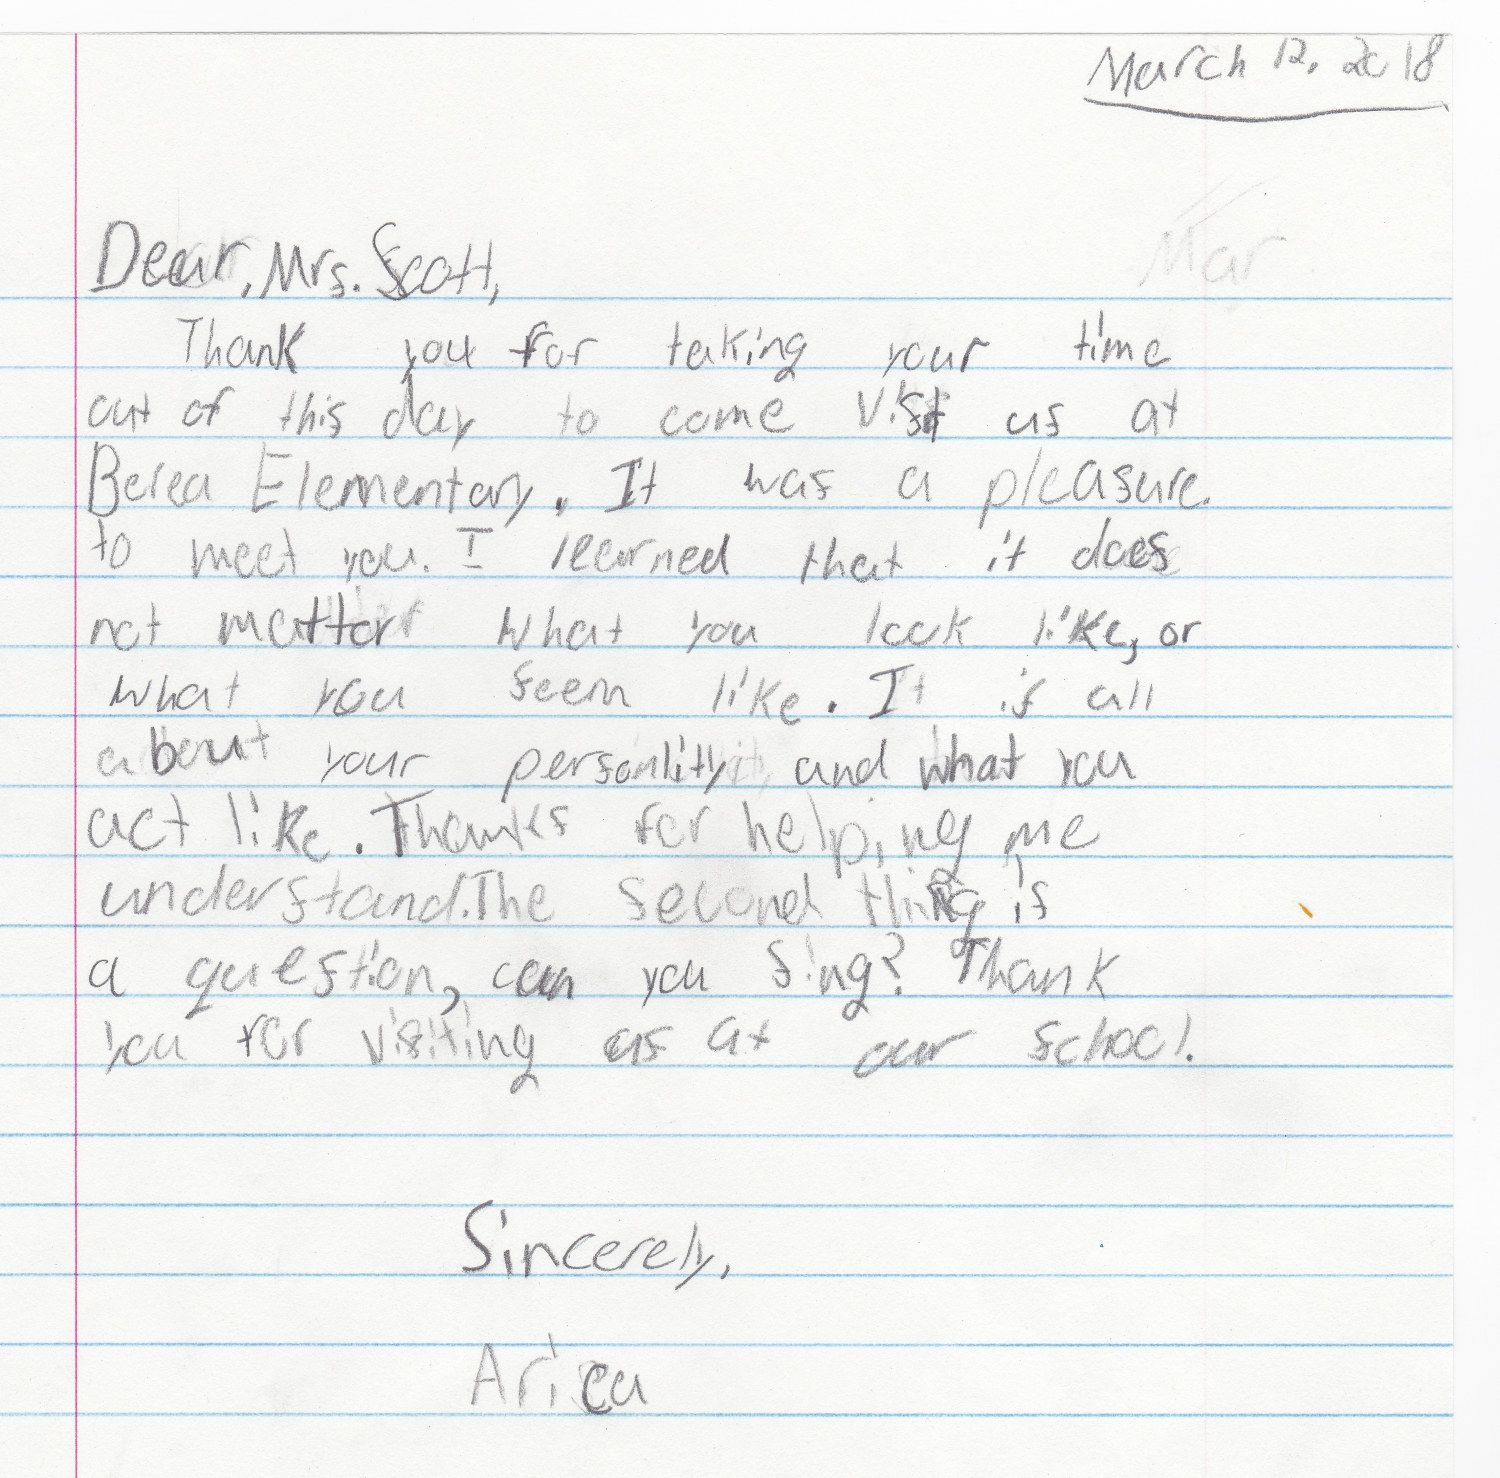 March 12, 2018
Mar
Dear, Mrs. Scott,
Thank you for taking your time
out of this day to come visit us at
Berea Elementary. It was a pleasure.
to meet you. I learned that it does
not mattor what you look like, or
what you seem like. It is all
about your personlity, and what you
act like. Thanks for helping me
understand. The second thing is
a question, can you sing? Thank
you for visiting us at our school.
Sincerely,
Arica